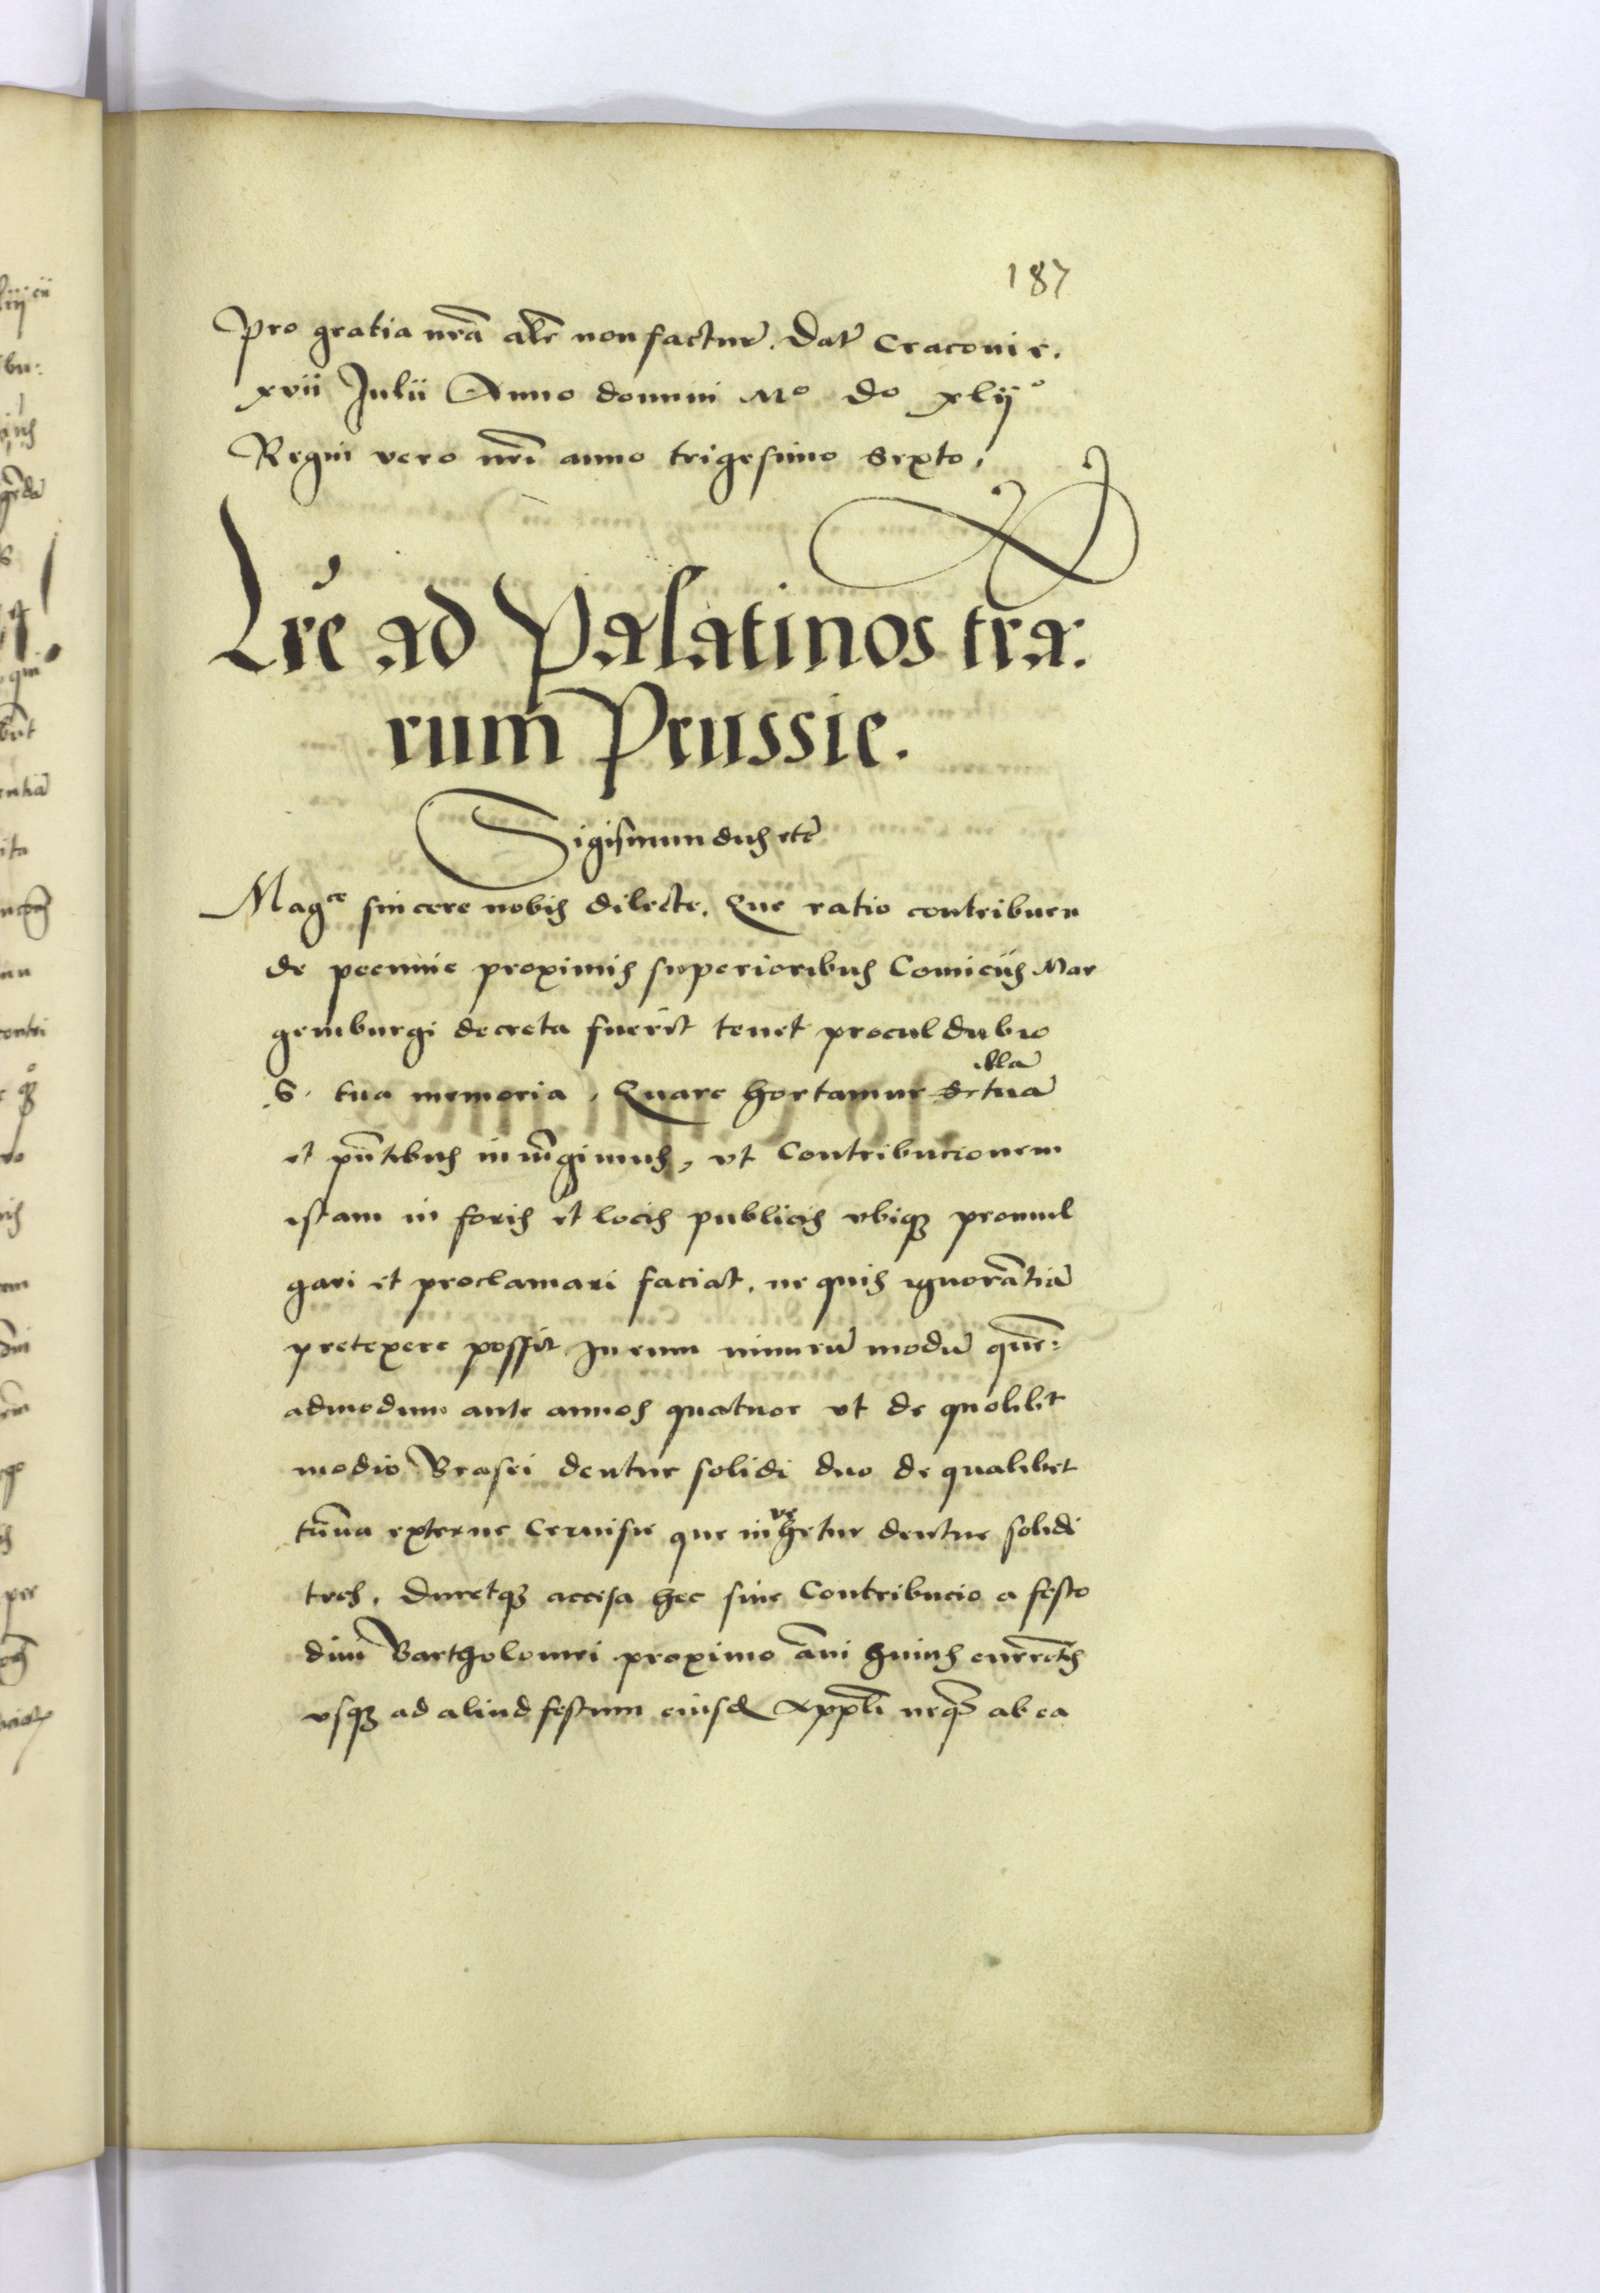 187
pro gratia nrā alr̄ non factur̄. Dat̄ Cracovie.
xvii Julii Anno domini Mº dº xlijº
Regni vero nrī anno trigesimo Sexto.
Lrē ad Palatinos tra:
rum Prussie.
Sigismundus etc̄
Magce sincere nobis dilecte. Que ratio contribuen
de pecunie proximis superioribus Comiciis Mar
gemburgi decreta fuerit tenet procul dubio
illā
S. tua memoria, Quare hortamur S tuā
et pn̄tibus iniūgimus, ut Contribucionem
istam in foris et locis publicis ubiqʒ promul
gari et proclamari faciat, ne quis ignorātiā
pretexere possit In eum nimirū modū quē:
admodum ante annos quatuor ut de quolibet
modio Brasei dentur solidi duo de qualibet
tūna externe Cervisie que inve hetur dentur solidi
tres. Duretqʒ accisa hec sive Contribucio a festo
divi Bartholomei proximo āni huius currētis
usqʒ ad aliud festum eiusd Appl̄i neqʒ ab ea